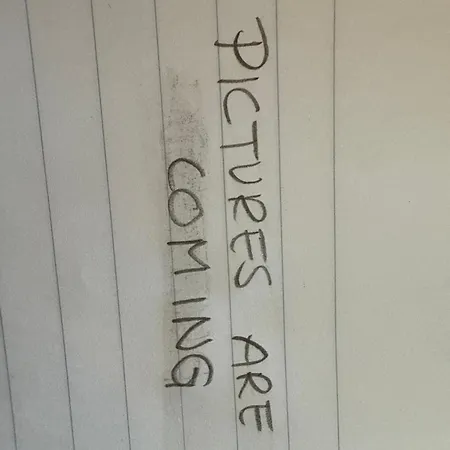 PICTURES ARE
COMING